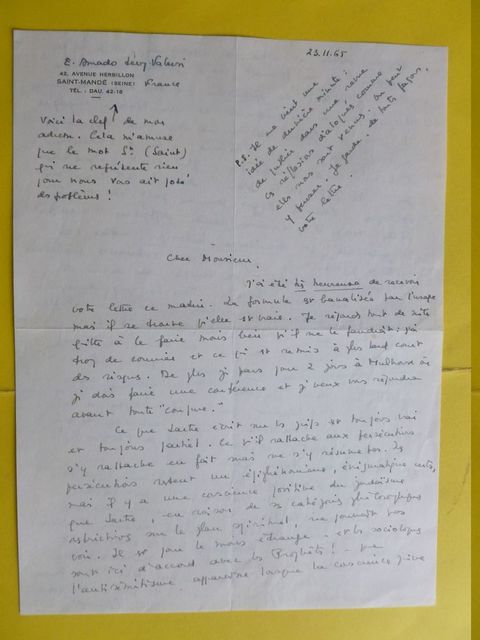 23.11.65
E. Amado Lévy-Valensi
42, AVENUE HERBILLON
SAINT-MANDÉ (SEINE) France
TÉL.: DAU. 42-18
Voici la clef de mon
adresse. Cela m'amuse
que le mot St (Saint)
qui ne représente rien
pour nous vous ait posé
des problèmes !
P.S. Il me vient une
idée de dernière minute :
de publier dans une revue
ces réflexions dialoguées comme
elles nous sont venues. On peut
y penser. Je garde de toutes façons
votre lettre.
Cher Monsieur,
J'ai été très heureuse de recevoir
votre lettre ce matin. La formule est banalisée par l'usage
mais il se trouve qu'elle est vraie. Je réponds tout de suite
quitte à le faire moins bien qu'il ne le faudrait : j'ai
trop de courrier et ce qui est remis à plus tard court
des risques. De plus je pars pour 2 jours à Mulhouse où
je dois faire une conférence et je veux vous répondre
avant toute "coupure."
Ce que Sartre écrit sur les juifs est toujours vrai
et toujours partiel. Ce qu'il rattache aux persécutions
s'y rattache en fait mais ne s'y résume pas. Les
persécutions restent un épiphénomène, énigmatique certes,
mais il y a une conscience positive du judaïsme
que Sartre, en raison de ses catégories philosophiques
restrictives sur le plan spirituel, ne pouvait pas
voir. Il est pour le moins étrange - et les sociologues
sont ici d'accord avec les Prophètes ! - que
l'antisémitisme apparaisse lorsque la conscience juive